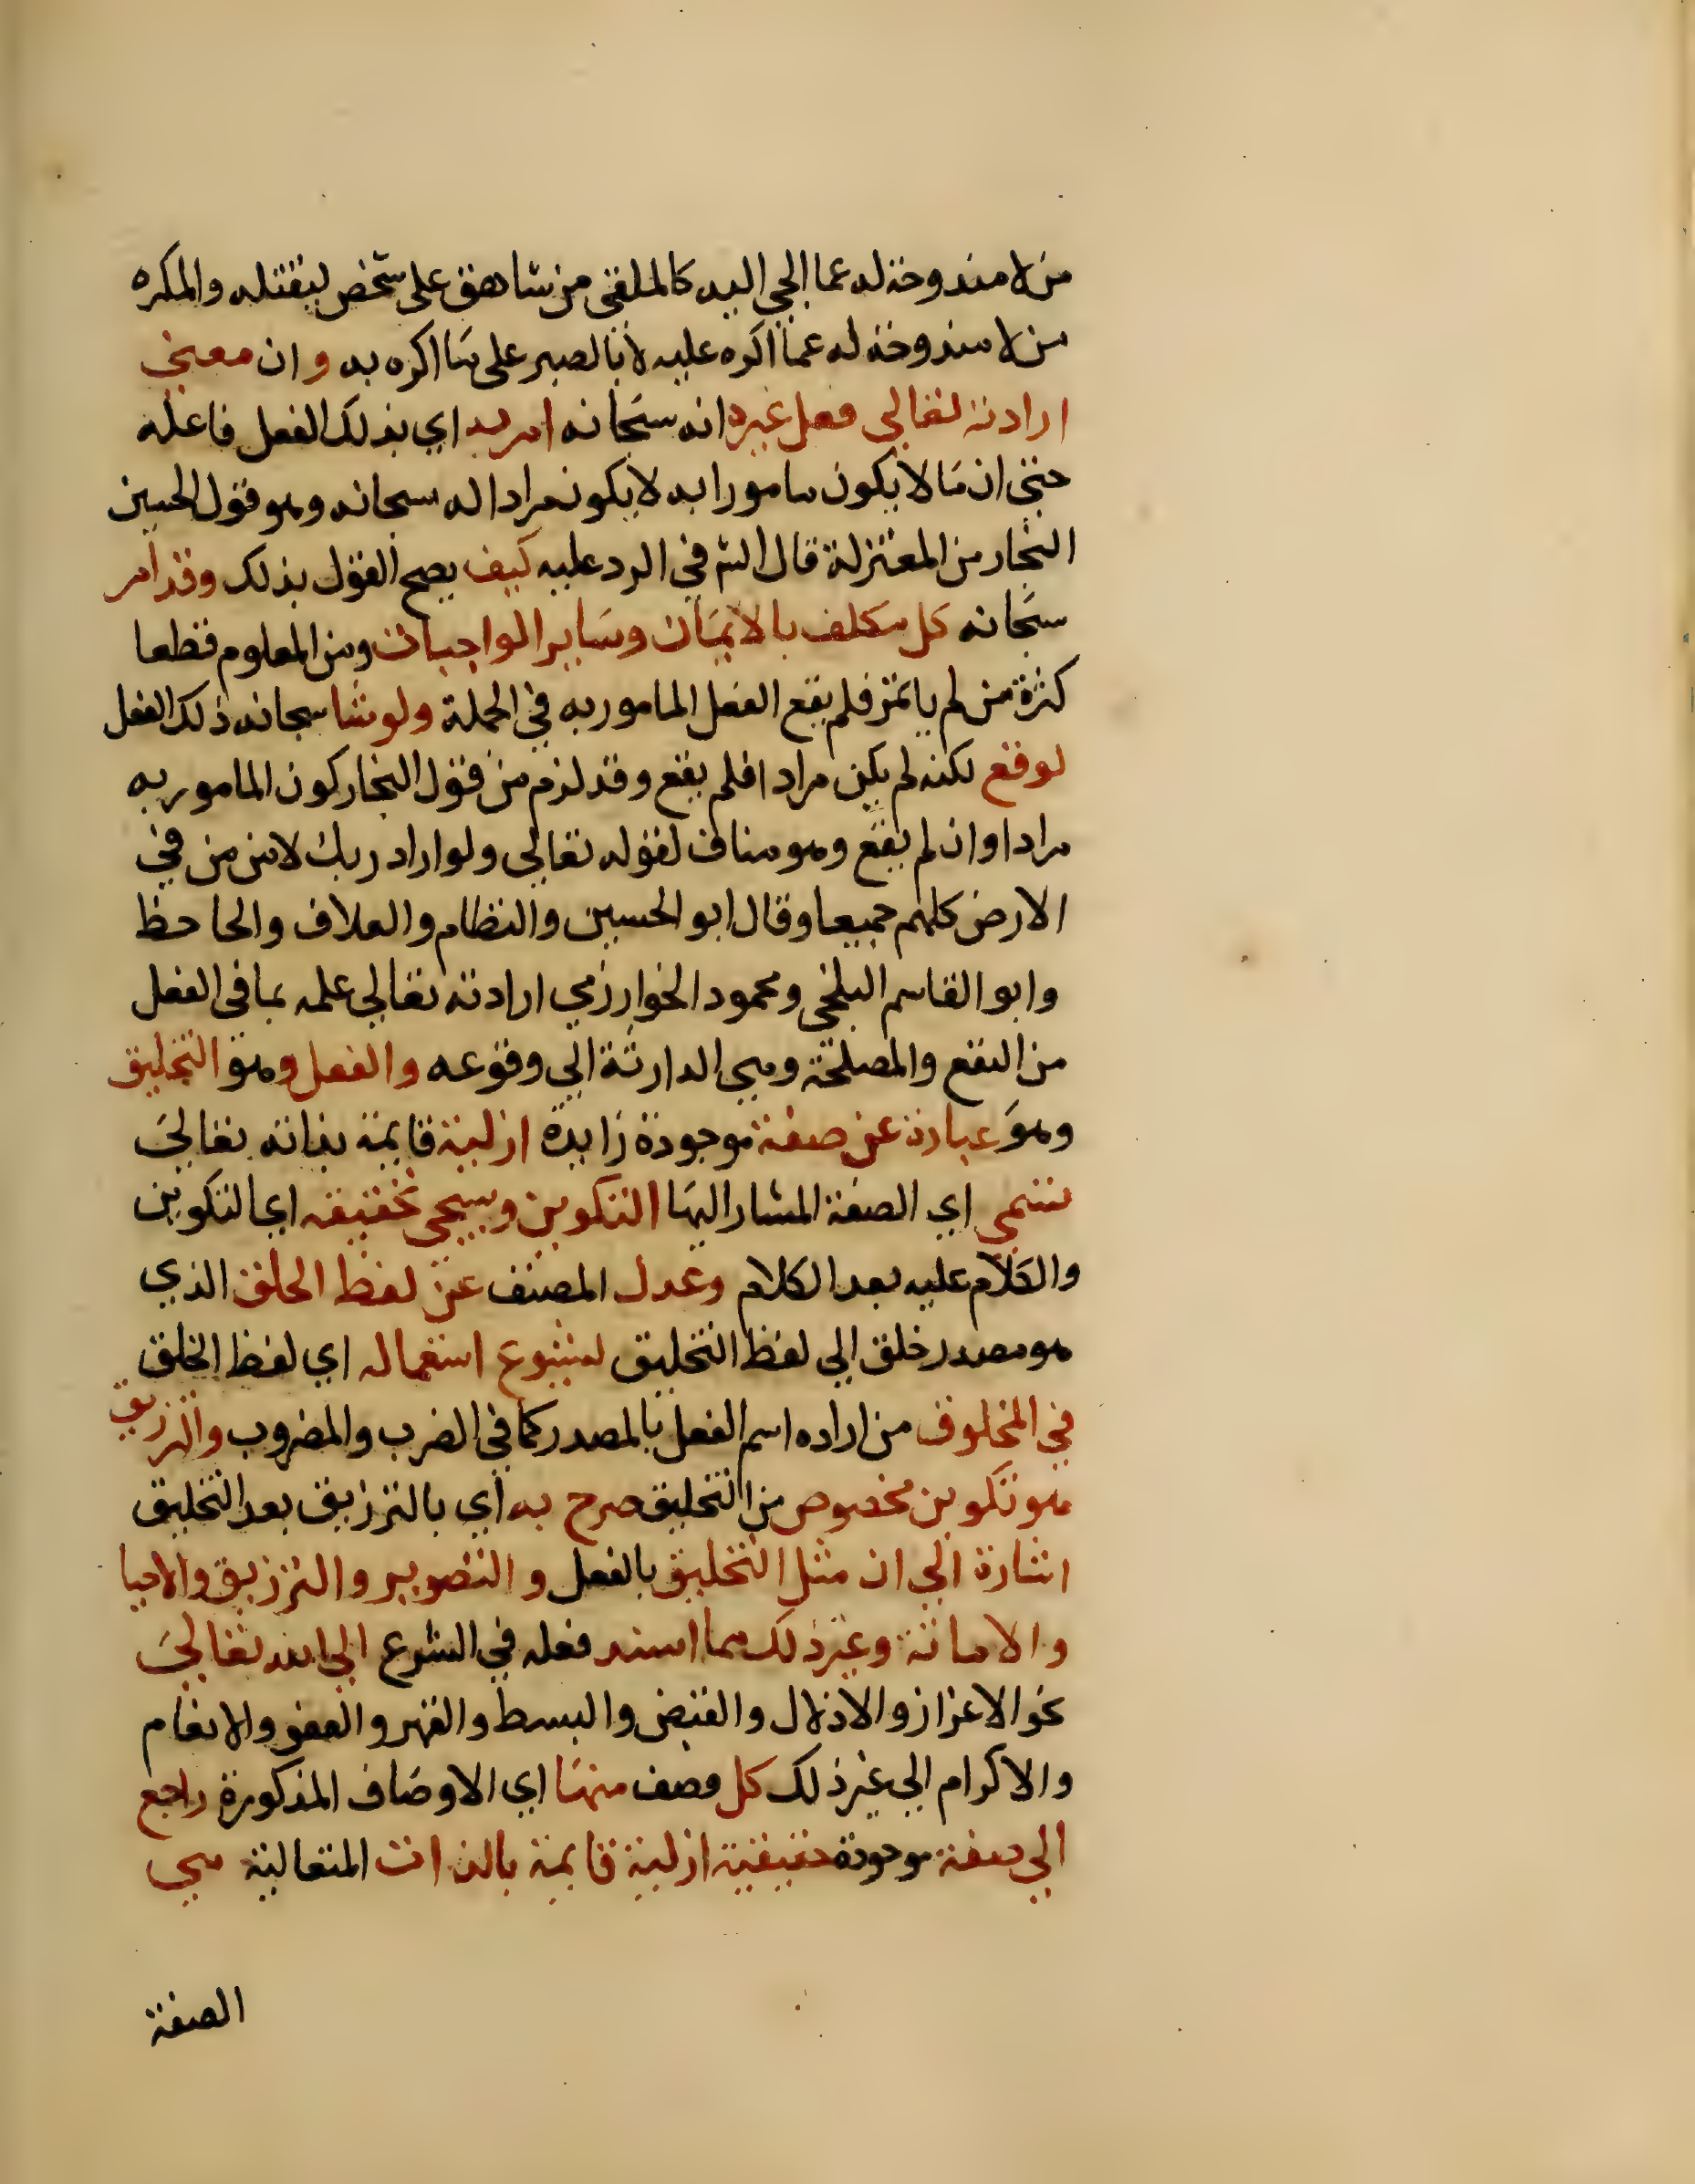 من لا مندوحة له عما الجي اليه كالملقى من شاهق على شخص ليقتله والمكره
من لا مندوحة له عما اكره عليه لا بالصبر على ما اكره به وان معنى
ارادته تعالى فعل غيره انه سبحانه امر به اي بذلك الفعل فاعله
حتى ان ما لا يكون مامورا به لا يكون مرادا له سبحانه وهو قول الحسين
النجار من المعتزلة قال الشم في الرد عليه كيف يصح القول بذلك وقد امر
سبحانه كل مكلف بالايمان وساير الواجبات ومن المعلوم قطعا
كثرة من لم ياتمر فلم يقع الفعل المامور به في الجملة ولو شا سبحانه ذلك الفعل
لوقع لكنه لم يكن مرادا فلم يقع وقد لزم من قول النجار كون المامور به
مرادا وان لم يقع وهو مناف لقوله تعالى ولو اراد ربك لامن من في
الارض كلهم جميعا وقال ابو الحسين والنظام والعلاف والجاحظ
وابو القاسم البلخي ومحمود الخوارزمي ارادته تعالى علمه بما في الفعل
من النفع والمصلحة وهي الدارثة الي وقوعه والفعل وهو التخليق
وهو عبارة عن صفة موجودة زايدة ازلية قايمة بذاته تعالى
تسمى اي الصفة المشار اليها التكوين وسيجي تحقيقه اي التكوين
والكلام عليه بعد الكلام وعدل المصنف عن لفظ الخلق الذي
هو مصدر خلق الى لفظ التخليق لشيوع استعماله اي لفظ الخلق
في المخلوق من اراده اسم الفعل بالمصدر كما في الضرب والمضروب والترزيق
هو تكوين مخصوص من التخليق صرح به اي بالترزيق بعد التخليق
اشارة الى ان مثل التخليق بالفعل والتصوير والترزيق والاحيا
والاماتة وغير ذلك مما اسند فعله في الشرع الى الله تعالى
نحو الاعزاز والاذلال والقبض والبسط والقهر والعفو والانعام
والاكرام الى غير ذلك كل وصف منها اي الاوصاف المذكورة راجع
الى صفة موجودة حقيقية ازلية قايمة بالذات المتعالية هي
الصفة